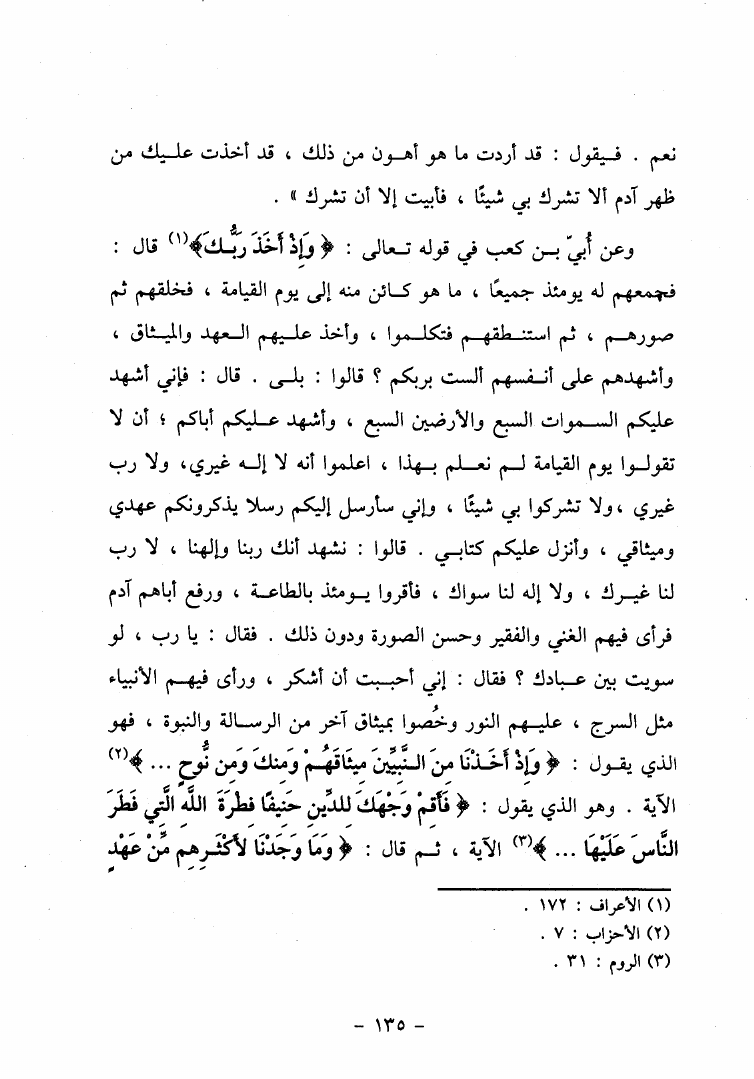 نعم . فـيقول : قد أردت ما هو أهـون من ذلك ، قد أخذت علـيك من
ظهر آدم ألا تشرك بي شيئًا ، فأبيت إلا أن تشرك » .
وعن أُبيّ بـن كعب في قوله تـعالى : ﴿ وَإِذْ أَخَذَ رَبُّكَ﴾(١) قال :
فجمعهم له يومئذ جميعًا ، ما هو كـائن منه إلى يوم القيامة ، فخلقهم ثم
صورهـم ، ثم استنـطقهـم فتكلـموا ، وأخذ علـيهم الـعهد والميـثاق ،
وأشهدهم على أنـفسهم ألست بربكم ؟ قالوا : بلـى . قال : فإني أشهد
عليكم السـموات السبع والأرضين السبع ، وأشهد عـليكم أباكم ؛ أن لا
تقولـوا يوم القيامة لـم نعـلم بـهذا ، اعلموا أنه لا إلـه غيري، ولا رب
غيري ،ولا تشركوا بي شيئًا ، وإني سأرسل إليكم رسلا يذكرونكم عهدي
وميثاقي ، وأنزل عليكم كتابـي . قالوا : نشهد أنك ربنا وإلهنا ، لا رب
لنا غيـرك ، ولا إله لنا سواك ، فأقروا يـومئذ بالطاعـة ، ورفع أباهم آدم
فرأى فيهم الغني والفقير وحسن الصورة ودون ذلك . فقال : يا رب ، لو
سويت بين عـبادك ؟ فقال : إني أحبـبت أن أشكر ، ورأى فيهـم الأنبياء
مثل السرج ، عليـهم النور وخُصوا بميثاق آخر من الرسـالة والنبوة ، فهو
الذي يقـول : ﴿ وَإِذْ أَخَـذْنَا مِنَ النَّبِيِّينَ مِيثَاقَهُـمْ وَمِنكَ وَمِن نُّوحٍ ... ﴾(٢)
الآية . وهو الذي يقول : ﴿ فَأَقِمْ وَجْهَكَ لِلدِّينِ حَنِيفًا فِطْرَةَ اللَّهِ الَّتِي فَطَرَ
النَّاسَ عَلَيْهَا ... ﴾(٣) الآية ، ثـم قال : ﴿ وَمَا وَجَدْنَا لأَكْثَـرِهِم مِّنْ عَهْدٍ
(١) الأعراف : ١٧٢ .
(٢) الأحزاب : ٧ .
(٣) الروم : ٣١ .
- ١٣٥ -